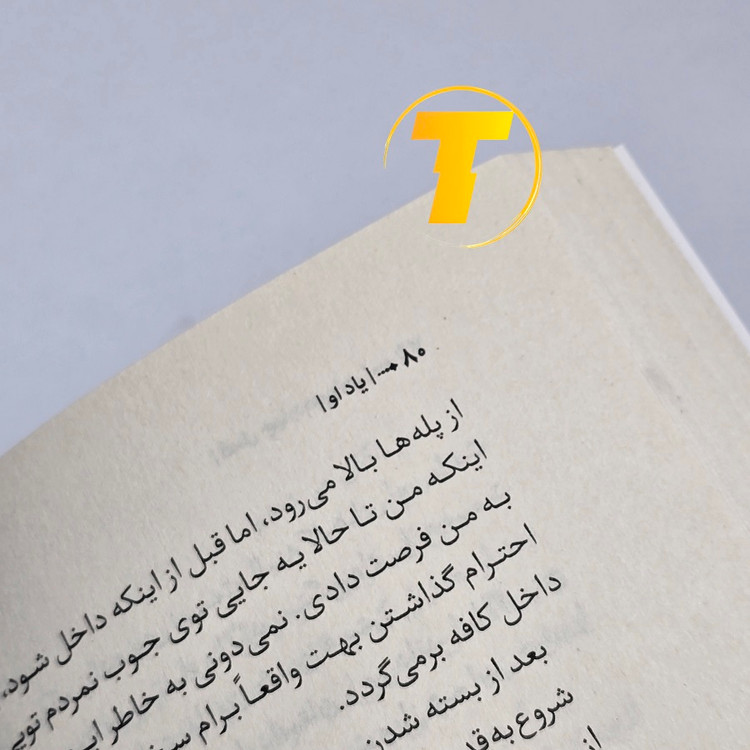 T
۸۰ | یاد او |
از پله‌ها بالا می‌رود، اما قبل از اینکه داخل شود،
اینکه من تا حالا یه جایی توی جوب نمردم تویی
به من فرصت دادی. نمی‌دونی به خاطر
احترام گذاشتن بهت واقعاً برام
داخل کافه برمی‌گردد.
بعد از بسته شدن
شروع به
از